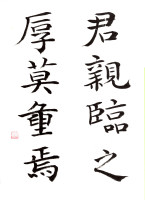 君親臨之
厚莫重焉